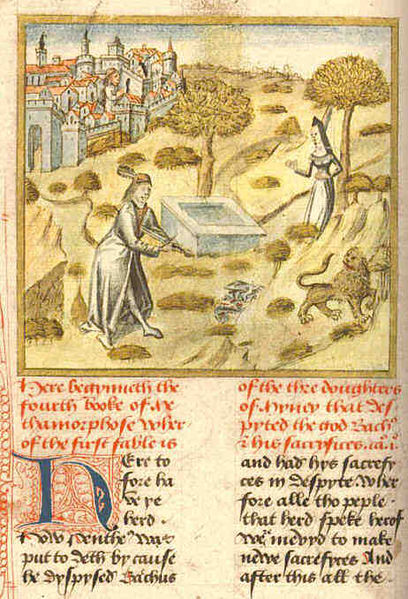 Here begynneth the
fourth booke of Me
thamorphose wher
of the first fable is
of the thre doughters
of Myney that des
pyted the god Bachꝰ
& his sacrefyces. ca. i.
Here to
fore ha
ve ye
herd .
how Pentheꝰ was
put to deth by cause
he dyspysed Bachus
and had hys sacrefy
ces in despyte Wher
fore alle tho peple .
that herd speke herof
were mevyd to make
newe sacrefyces And
after this all the